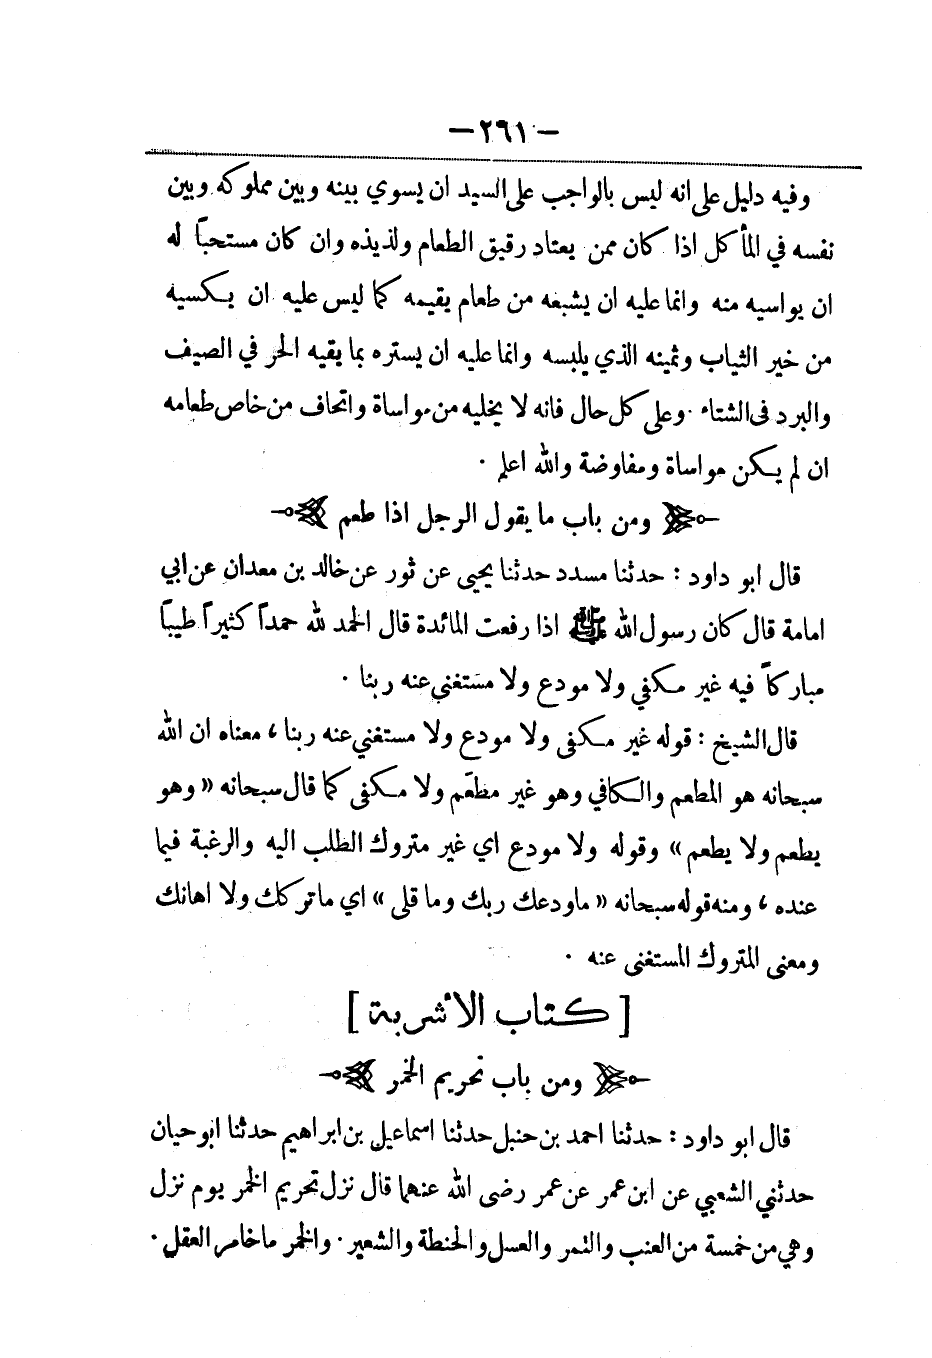 — ٢٦١ —
وفيه دليل على انه ليس بالواجب على السيد ان يسوي بينه وبين مملوكه وبين
نفسه في المأكل اذا كان ممن يعتاد رقيق الطعام ولذيذه وان كان مستحباً له
ان يواسيه منه وانما عليه ان يشبعه من طعام يقيمه كما ليس عليه ان يكسيه
من خير الثياب وثمينه الذي يلبسه وانما عليه ان يستره بما يقيه الحر في الصيف
والبرد فى الشتاء . وعلى كل حال فانه لا يخليه من مواساة واتحاف من خاص طعامه
ان لم يكن مواساة ومفاوضة والله اعلم .
ومن باب ما يقول الرجل اذا طعم
قال ابو داود : حدثنا مسدد حدثنا يحيى عن ثور عن خالد بن معدان عن ابي
امامة قال كان رسول الله ﷺ اذا رفعت المائدة قال الحمد لله حمداً كثيراً طيباً
مباركاً فيه غير مكفي ولا مودع ولا مستغني عنه ربنا .
قال الشيخ : قوله غير مكفى ولا مودع ولا مستغني عنه ربنا ، معناه ان الله
سبحانه هو المطعم والكافي وهو غير مطعَم ولا مكفى كما قال سبحانه « وهو
يطعم ولا يطعم » وقوله ولا مودع اي غير متروك الطلب اليه والرغبة فيما
عنده ، ومنه قوله سبحانه « ماودعك ربك وما قلى » اي ماتركك ولا اهانك
ومعنى المتروك المستغنى عنه .
[ كتاب الأشربة ]
ومن باب تحريم الخمر
قال ابو داود : حدثنا احمد بن حنبل حدثنا اسماعيل بن ابراهيم حدثنا ابو حيان
حدثني الشعبي عن ابن عمر عن عمر رضى الله عنهما قال نزل تحريم الخمر يوم نزل
وهي من خمسة من العنب والتمر والعسل والحنطة والشعير . والخمر ماخامر العقل .